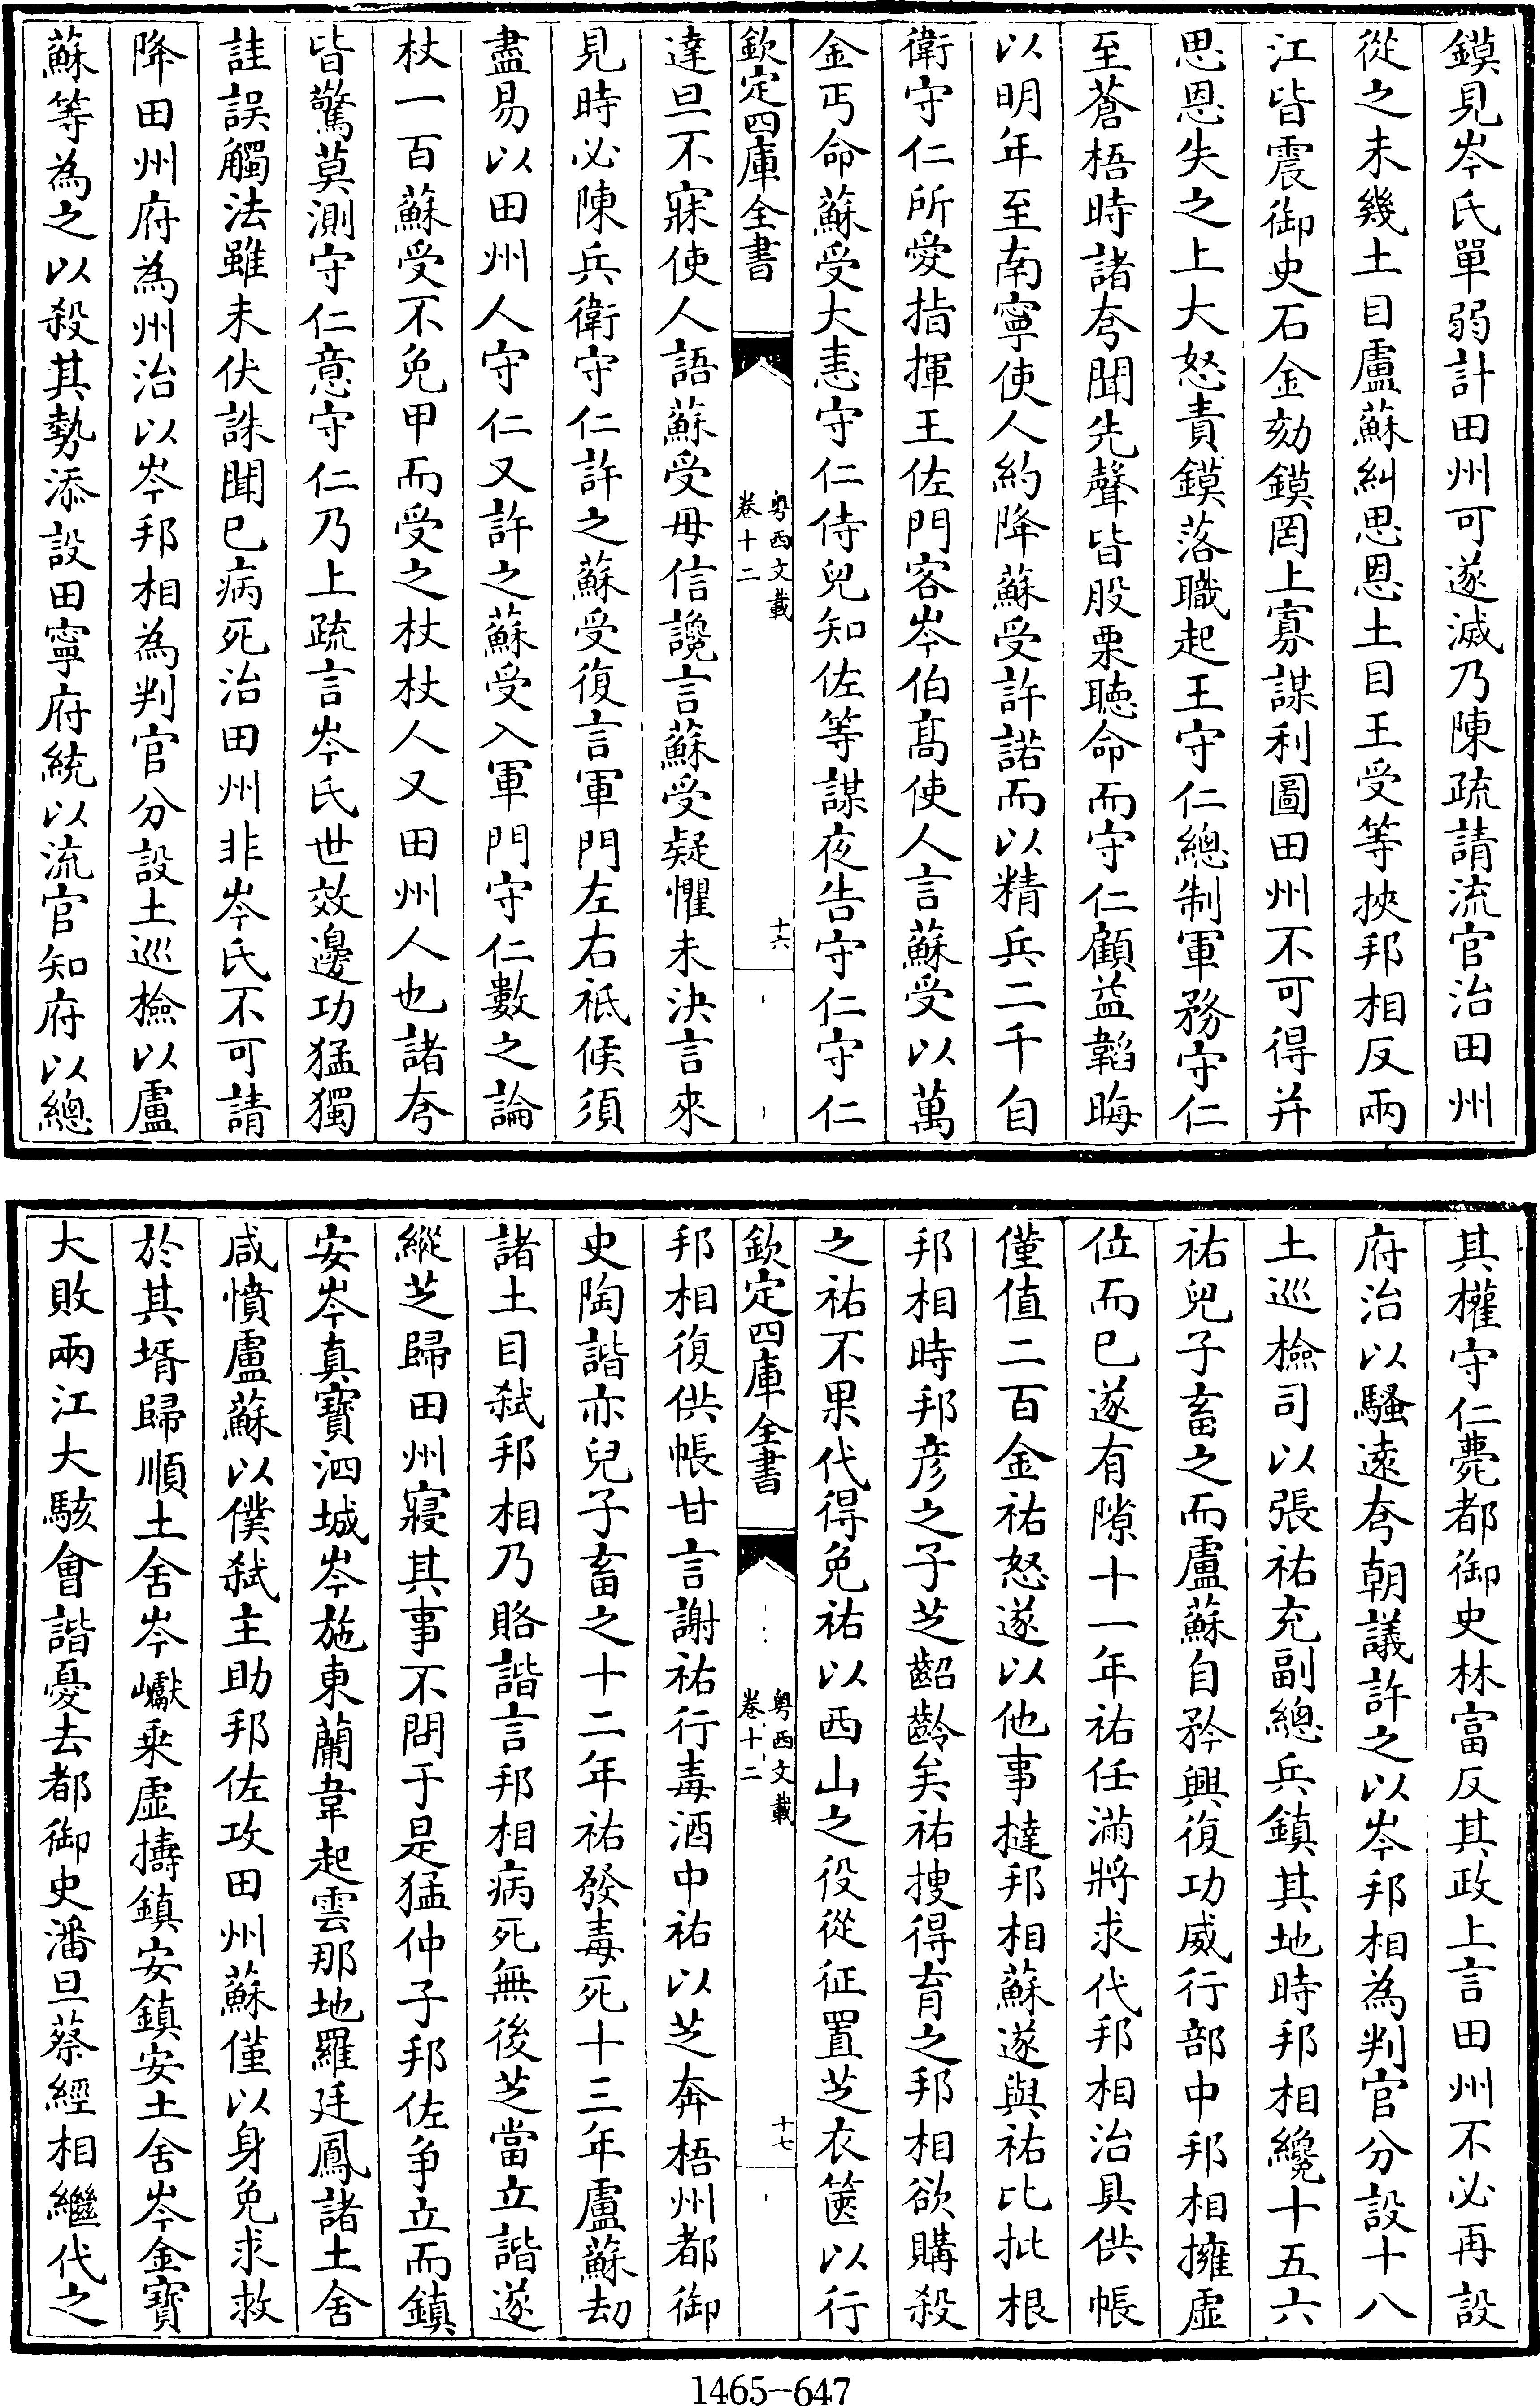 鏌見岑氏單弱計田州可遂滅乃陳疏請流官治田州
從之未幾土目盧蘇糾思恩土目王受等挾邦相反兩
江皆震御史石金劾鏌罔上寡謀利圖田州不可得并
思恩失之上大怒責鏌落職起王守仁總制軍務守仁
至蒼梧時諸夸聞先聲皆股栗聴命而守仁顧益韜晦
以明年至南寧使人約降蘇受許諾而以精兵二千自
衛守仁所愛指揮王佐門客岑伯髙使人言蘇受以萬
金丐命蘇受大恚守仁侍兒知佐等謀夜告守仁守仁
欽定四庫全書
粤西文載
卷十二
十六
達旦不寐使人語蘇受毋信讒言蘇受疑懼未決言來
見時必陳兵衛守仁許之蘇受復言軍門左右祗候須
盡易以田州人守仁又許之蘇受入軍門守仁數之論
杖一百蘇受不免甲而受之杖杖人又田州人也諸夸
皆驚莫測守仁意守仁乃上疏言岑氏世效邊功猛獨
詿誤觸法雖未伏誅聞已病死治田州非岑氏不可請
降田州府為州治以岑邦相為判官分設土巡檢以盧
蘇等為之以殺其勢添設田寧府統以流官知府以總
其權守仁薨都御史林富反其政上言田州不必再設
府治以騷遠夸朝議許之以岑邦相為判官分設十八
土巡檢司以張祐充副總兵鎮其地時邦相纔十五六
祐兒子畜之而盧蘇自矜興復功威行部中邦相擁虛
位而已遂有隙十一年祐任滿將求代邦相治具供帳
僅值二百金祐怒遂以他事撻邦相蘇遂與祐比批根
邦相時邦彦之子芝齠齡矣祐捜得育之邦相欲購殺
之祐不果代得免祐以西山之役從征置芝衣篋以行
欽定四庫全書
粤西文載
卷十二
十七
邦相復供帳甘言謝祐行毒酒中祐以芝奔梧州都御
史陶諧亦兒子畜之十二年祐發毒死十三年盧蘇刧
諸土目弑邦相乃賂諧言邦相病死無後芝當立諧遂
縱芝歸田州寢其事不問于是猛仲子邦佐争立而鎮
安岑真寶泗城岑施東蘭韋起雲那地羅廷鳳諸土舍
咸憤盧蘇以僕弑主助邦佐攻田州蘇僅以身免求救
於其壻歸順土舍岑巘乗虛擣鎮安鎮安土舍岑金寶
大敗兩江大駭會諧憂去都御史潘旦蔡經相繼代之
1465-647